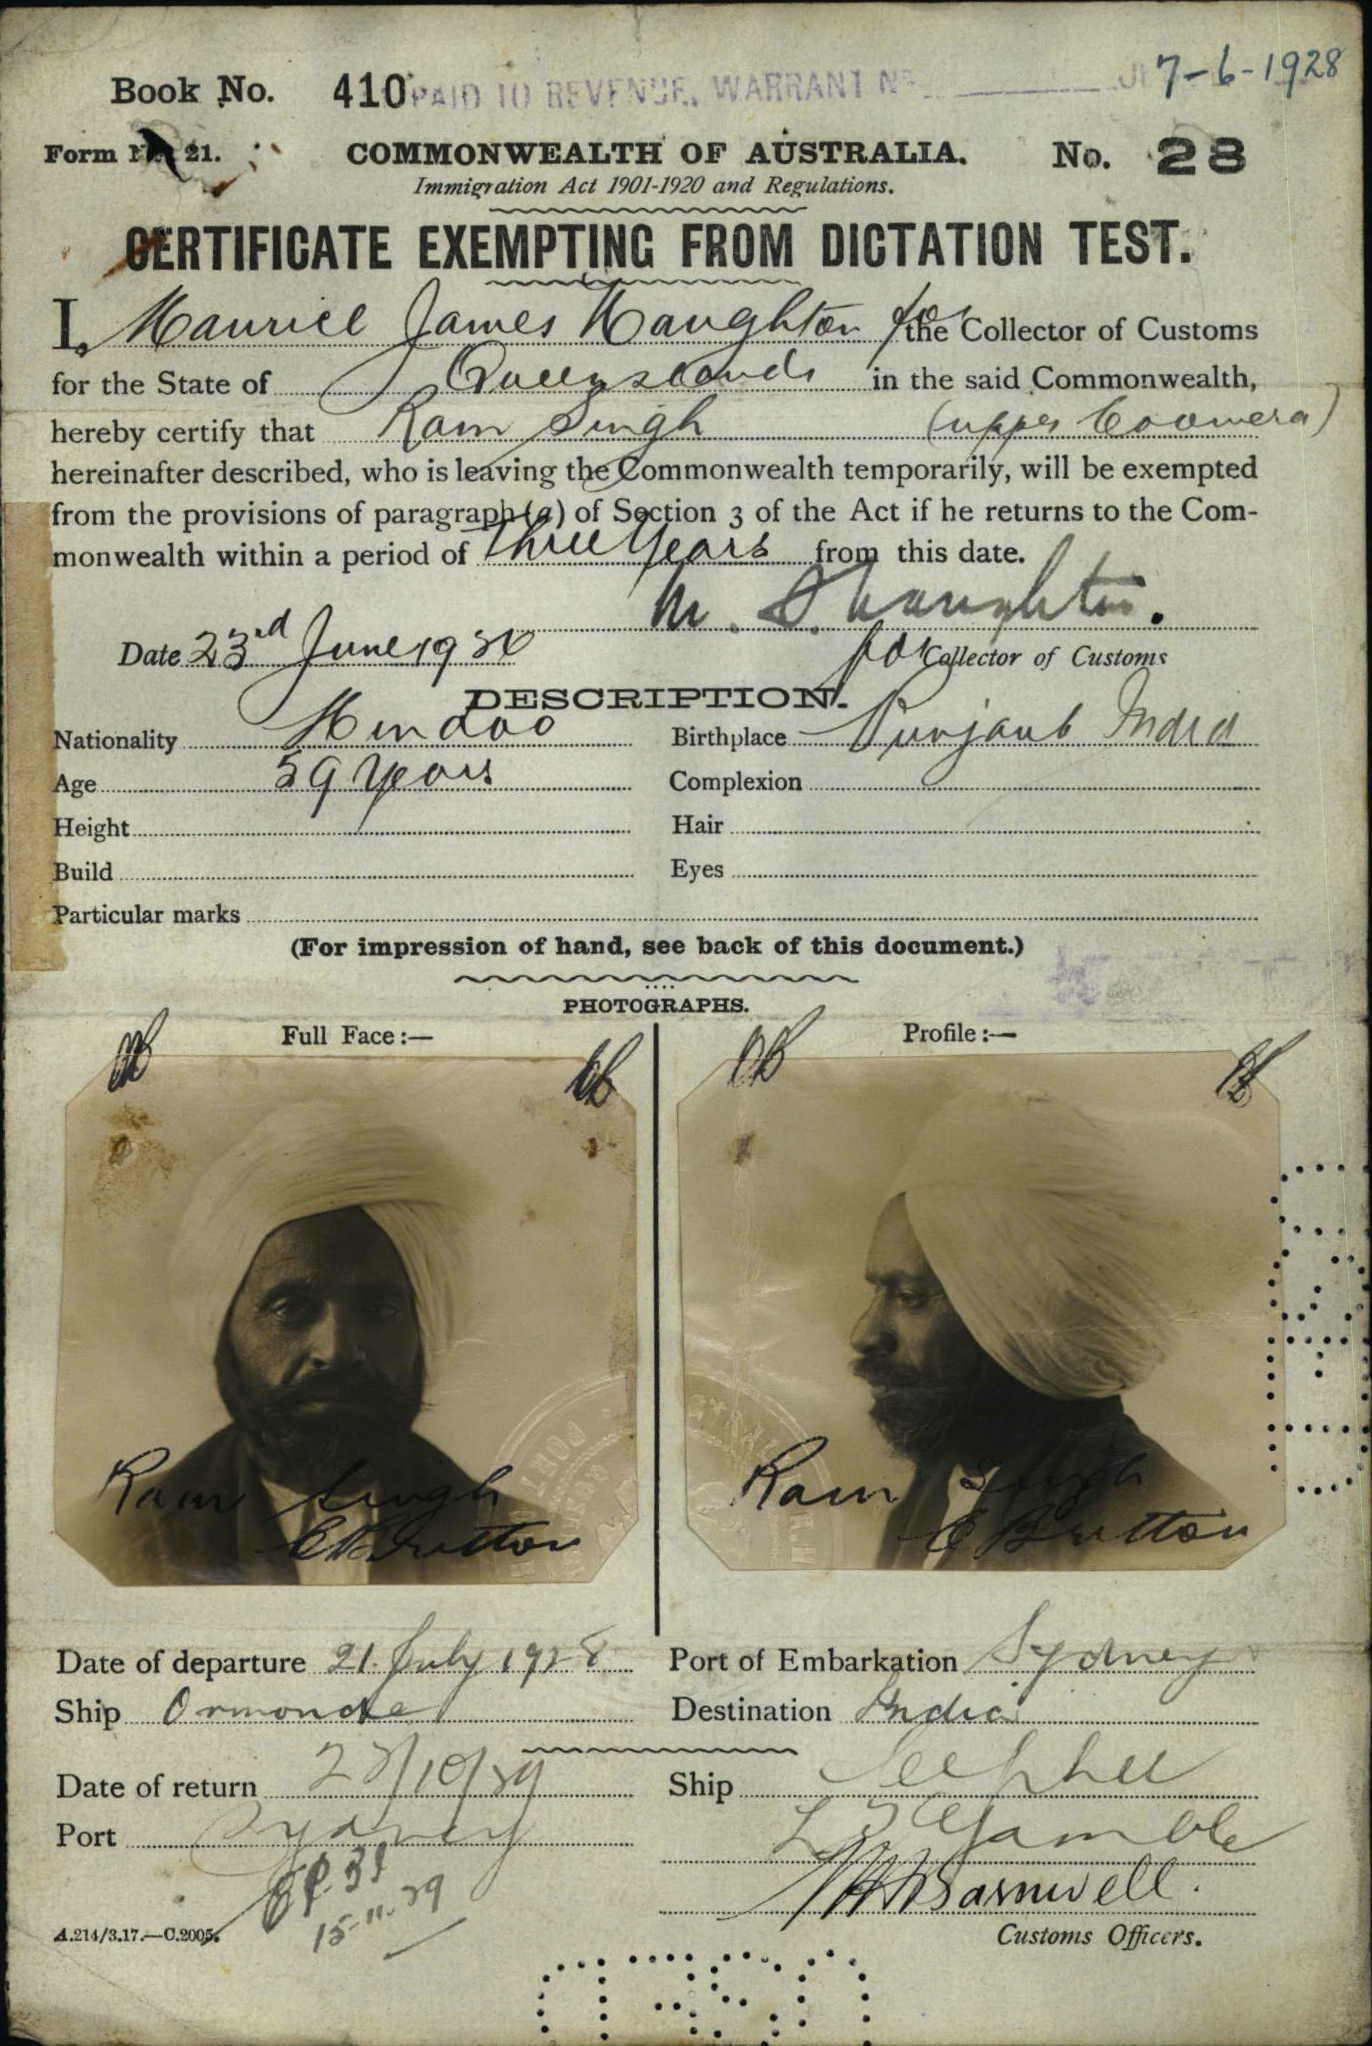 Book No. 410 PAID TO REVENUE, WARRANT No 7-6-1928
Form No. 21. COMMONWEALTH OF AUSTRALIA. No. 28
Immigration Act 1901-1920 and Regulations.
CERTIFICATE EXEMPTING FROM DICTATION TEST.
I, Maurice James Naughton for the Collector of Customs
for the State of Queensland in the said Commonwealth,
hereby certify that Ram Singh (upper Coomera)
hereinafter described, who is leaving the Commonwealth temporarily, will be exempted
from the provisions of paragraph (a) of Section 3 of the Act if he returns to the Com-
monwealth within a period of three Years from this date.
Date 23rd June 19 for Collector of Customs
DESCRIPTION.
Nationality Hindoo Birthplace Punjaub India
Age 59 Years Complexion
Height Hair
Build Eyes
Particular marks
(For impression of hand, see back of this document.)
PHOTOGRAPHS.
Full Face:— Profile:—
Ram Singh Ram Singh
Date of departure 21 July 1928 Port of Embarkation Sydney
Ship Ormonde Destination India
Date of return Ship
Port Sydney Gamble
Barnwell.
15-11-29
A.214/3.17.—C.2005. Customs Officers.